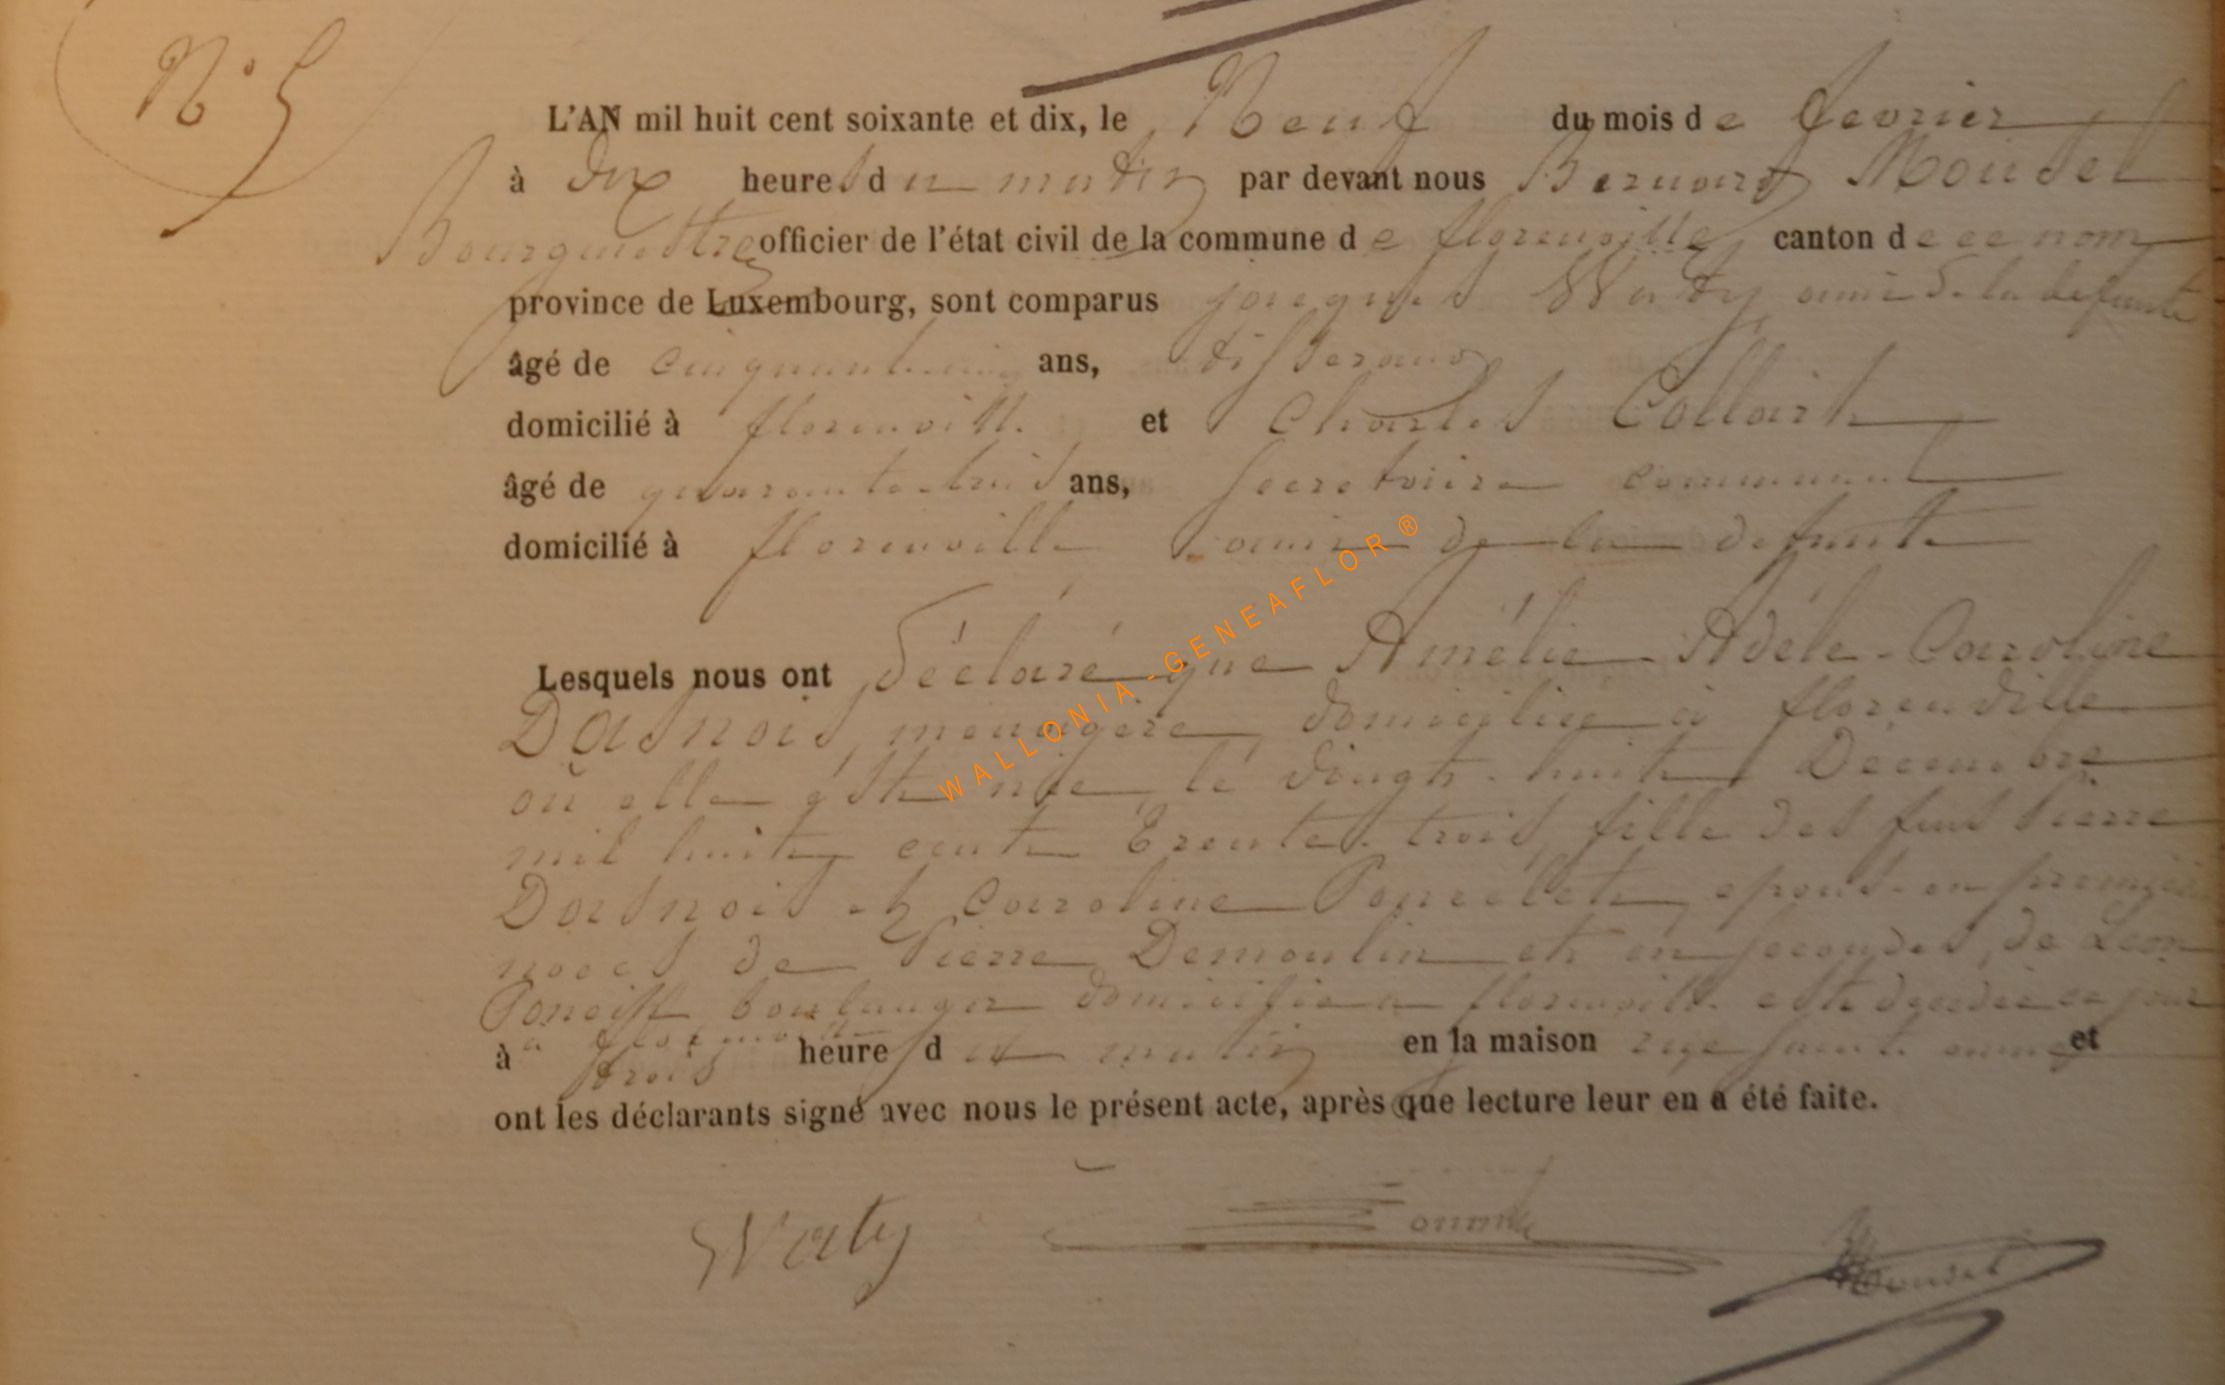 N° 5
L'AN mil huit cent soixante et dix, le Neuf du mois de fevrier
à dix heures du matin par devant nous Bernard Moudel
Bourgmestre officier de l'état civil de la commune de florenville canton de ce nom
province de Luxembourg, sont comparus jacques Waty amie de la defunte
âgé de ans, tisserand
domicilié à florenville et Charles Collart
âgé de quarante-trois ans, secretaire communal
domicilié à florenville amie de la defunte
Lesquels nous ont déclaré que Amélie-Adéle-Caroline
Dasnois, menagère, domiciliée à florenville
où elle est née, le vingt-huit Décembre
mil huit cent trente-trois, fille des feus Pierre
Dasnois et Caroline Poncelet, epouse en premières
noces de Pierre Demoulin et en secondes, de Leon
boulanger domicilié a florenville est décédée ce jour
à a florenville trois heure du matin en la maison rue et
ont les déclarants signé avec nous le présent acte, après que lecture leur en a été faite.
Waty
Moudel
WALLONIA-GENEAFLOR®